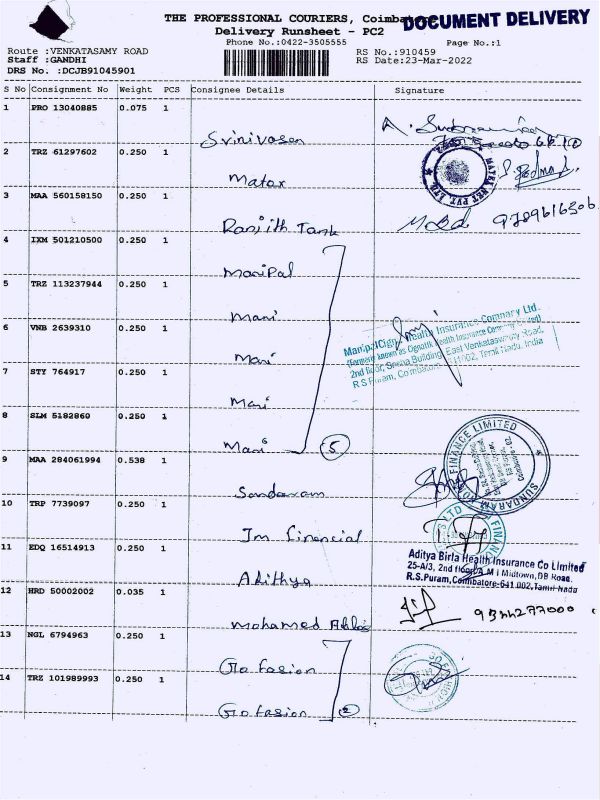 THE PROFESSIONAL COURIERS, Coimbatore
DOCUMENT DELIVERY
Delivery Runsheet - PC2
Phone No.:0422-3505555
Page No.:1
Route :VENKATASAMY ROAD
RS No.:910459
Staff :GANDHI
RS Date:23-Mar-2022
DRS No. :DCJB91045901
S No Consignment No Weight PCS Consignee Details Signature
1 PRO 13040885 0.075 1
Srinivasan
2 TRZ 61297602 0.250 1
Matex
3 MAA 560158150 0.250 1
Ranjith Tank
9789616506
4 IXM 501210500 0.250 1
Manipal
5 TRZ 113237944 0.250 1
Mani
6 VNB 2639310 0.250 1
Mani
ManipalCigna Health Insurance Company Ltd.
2nd floor, Building, East Venkataswamy Road,
R.S Puram, Coimbatore Tamil Nadu, India
7 STY 764917 0.250 1
Mani
8 SLM 5182860 0.250 1
Mani 5
9 MAA 284061994 0.538 1
SUNDARAM FINANCE LIMITED
Sundaram
10 TRP 7739097 0.250 1
Im financial
11 EDQ 16514913 0.250 1
Aditya Birla Health Insurance Co Limited
25-A/3, 2nd floor, A M I Midtown, DB Road,
R.S.Puram, Coimbatore-641 002, Tamil Nadu
Adithya
12 HRD 50002002 0.035 1
Mohamed
13 NGL 6794963 0.250 1
Go fasion
14 TRZ 101989993 0.250 1
Go fasion 2